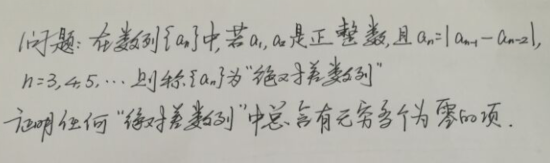 问题：在数列{aₙ}中，若a₁,a₂是正整数，且aₙ=|aₙ₋₁-aₙ₋₂|,
n=3,4,5,…则称{aₙ}为"绝对差数列"
证明任何"绝对差数列"中总含有无穷多个为零的项.